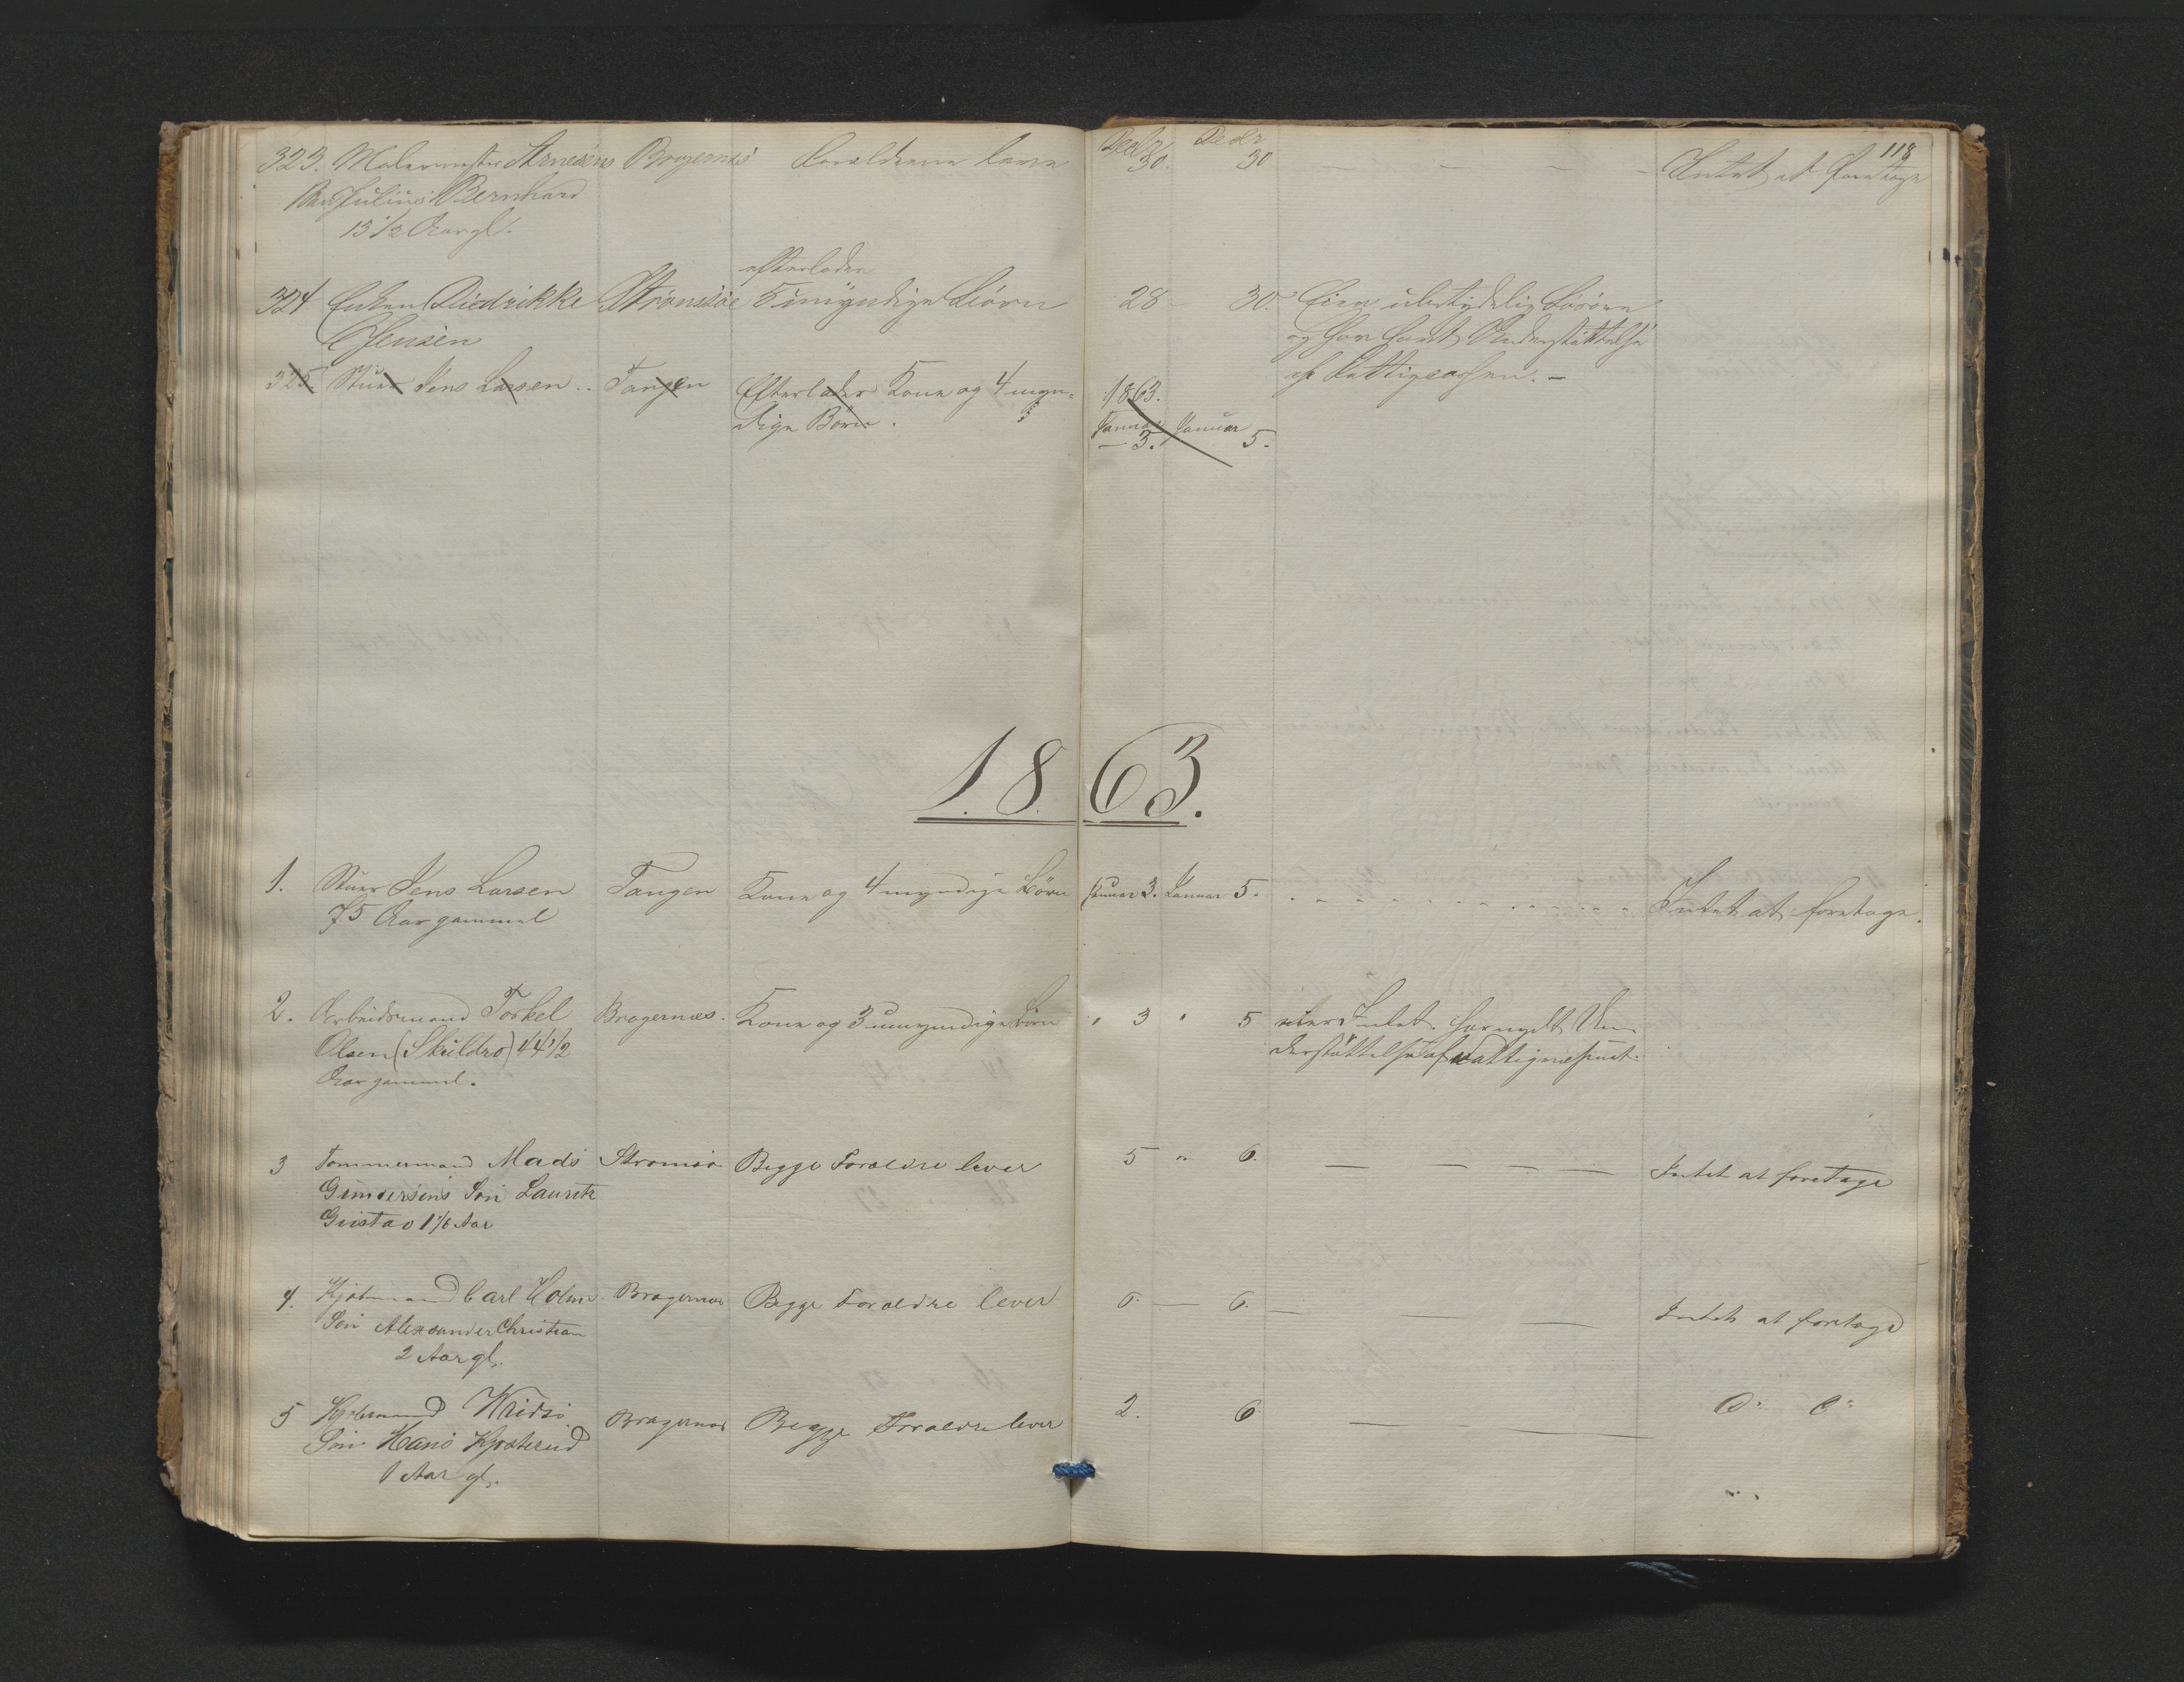 118
323. Malermester Arnesens Bragernæs Forældrene lever Decbr 30. Decbr 30 — — — — Intet at foretage
Barn Julius Bernhard
13 1/2 Aar gl.
efterlader
324 Enken Diedrikke Strømsøe 5 umyndige Børn 28 — 30. Eier ubetydelig Løsøre
C Jensen og har havt Understøttelse
af Fattigcassen. —
325. Stuer Jens Larsen .. Tangen Efterlader Kone og 4 myn-
dige Børn. 1863.
Januar — 3. Januar 5.
1863.
1. Stuer Jens Larsen Tangen Kone og 4 myndige Børn Januar 3. Januar 5. Intet at foretage.
75 Aar gammel
2. Arbeidsmand Torkel Bragernæs. Kone og 3 umyndige Børn " 3 " 5 eier Intet. har nydt Un-
Olsen (Skuldro) 44 1/2 derstøttelse af
Aar gammel.
3 Tømmermand Mads Strømsø Begge Forældre lever 5 " 6. — — — — Intet at foretage
Gundersens Søn Lauritz
Gustav 1 1/6 Aar
4. Kjøbmand Carl Holms Bragernæs Begge Forældre lever 5 — 6. — — — Intet at foretage
Søn Alexander Christian
2 Aar gl.
5 Bragernæs Begge Forældre lever 2. 6 — — D: o:
Søn Hans
1 Aar gl.